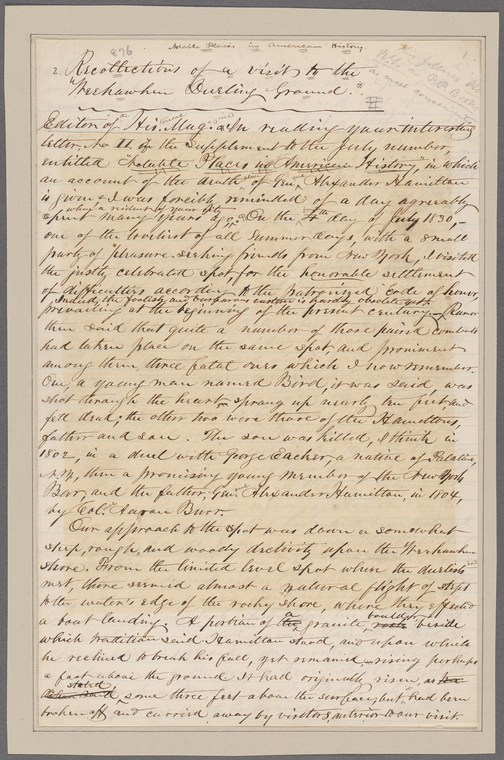 Notable Places in American History.
876
2. Recollections of a visit to the
"Weehawken Dueling Ground."
Editor of His. Mag: In reading your interesting
letter, No 11. in the Supplement to the July number,
entitled "Notable Places in American History," in which
an account of the death of Gen. Alexander Hamilton
is given I was forcibly reminded of a day agreeably
when a resident of your city
spent many years ago. On the 4th day of July 1830,-
one of the loveliest of all Summer days, with a small
party of pleasure seeking friends from New York, I visited
the justly celebrated spot for the honorable settlement
of difficulties according to the patronized code of honor,
Indeed, the foolish and barbarous custom is hardly obsolete yet
prevailing at the beginning of the present century. Rumor
then said that quite a number of those paired combats
had taken place on the same spot, and prominent
among them, three fatal ones which I now remember.
One, a young man named Bird, it was said, was
shot through the heart, sprang up nearly ten feet, and
fell dead; the other two were those of the Hamiltons,
father and son. The son was killed, I think in
1802, in a duel with George Eacker, a native of Palatine,
N.Y., then a promising young member of the New York
Barr, and the father, Gen. Alexander Hamilton, in 1804,
by Col. Aaron Burr.
Our approach to the spot was down a somewhat
steep, rough, and woody declivity upon the Weehawken
shore. From the limited level spot where the duelists
met, there seemed almost a natural flight of steps
to the water's edge of the rocky shore, where they effected
a boat landing. A portion of the a granite rock boulder beside
which tradition said Hamilton stood, and upon which
he reclined to break his fall, yet remained rising perhaps
a foot above the ground. It had originally risen, as
stated some three feet above the surface, but had been
broken off and carried away by visitors, anterior to our visit.